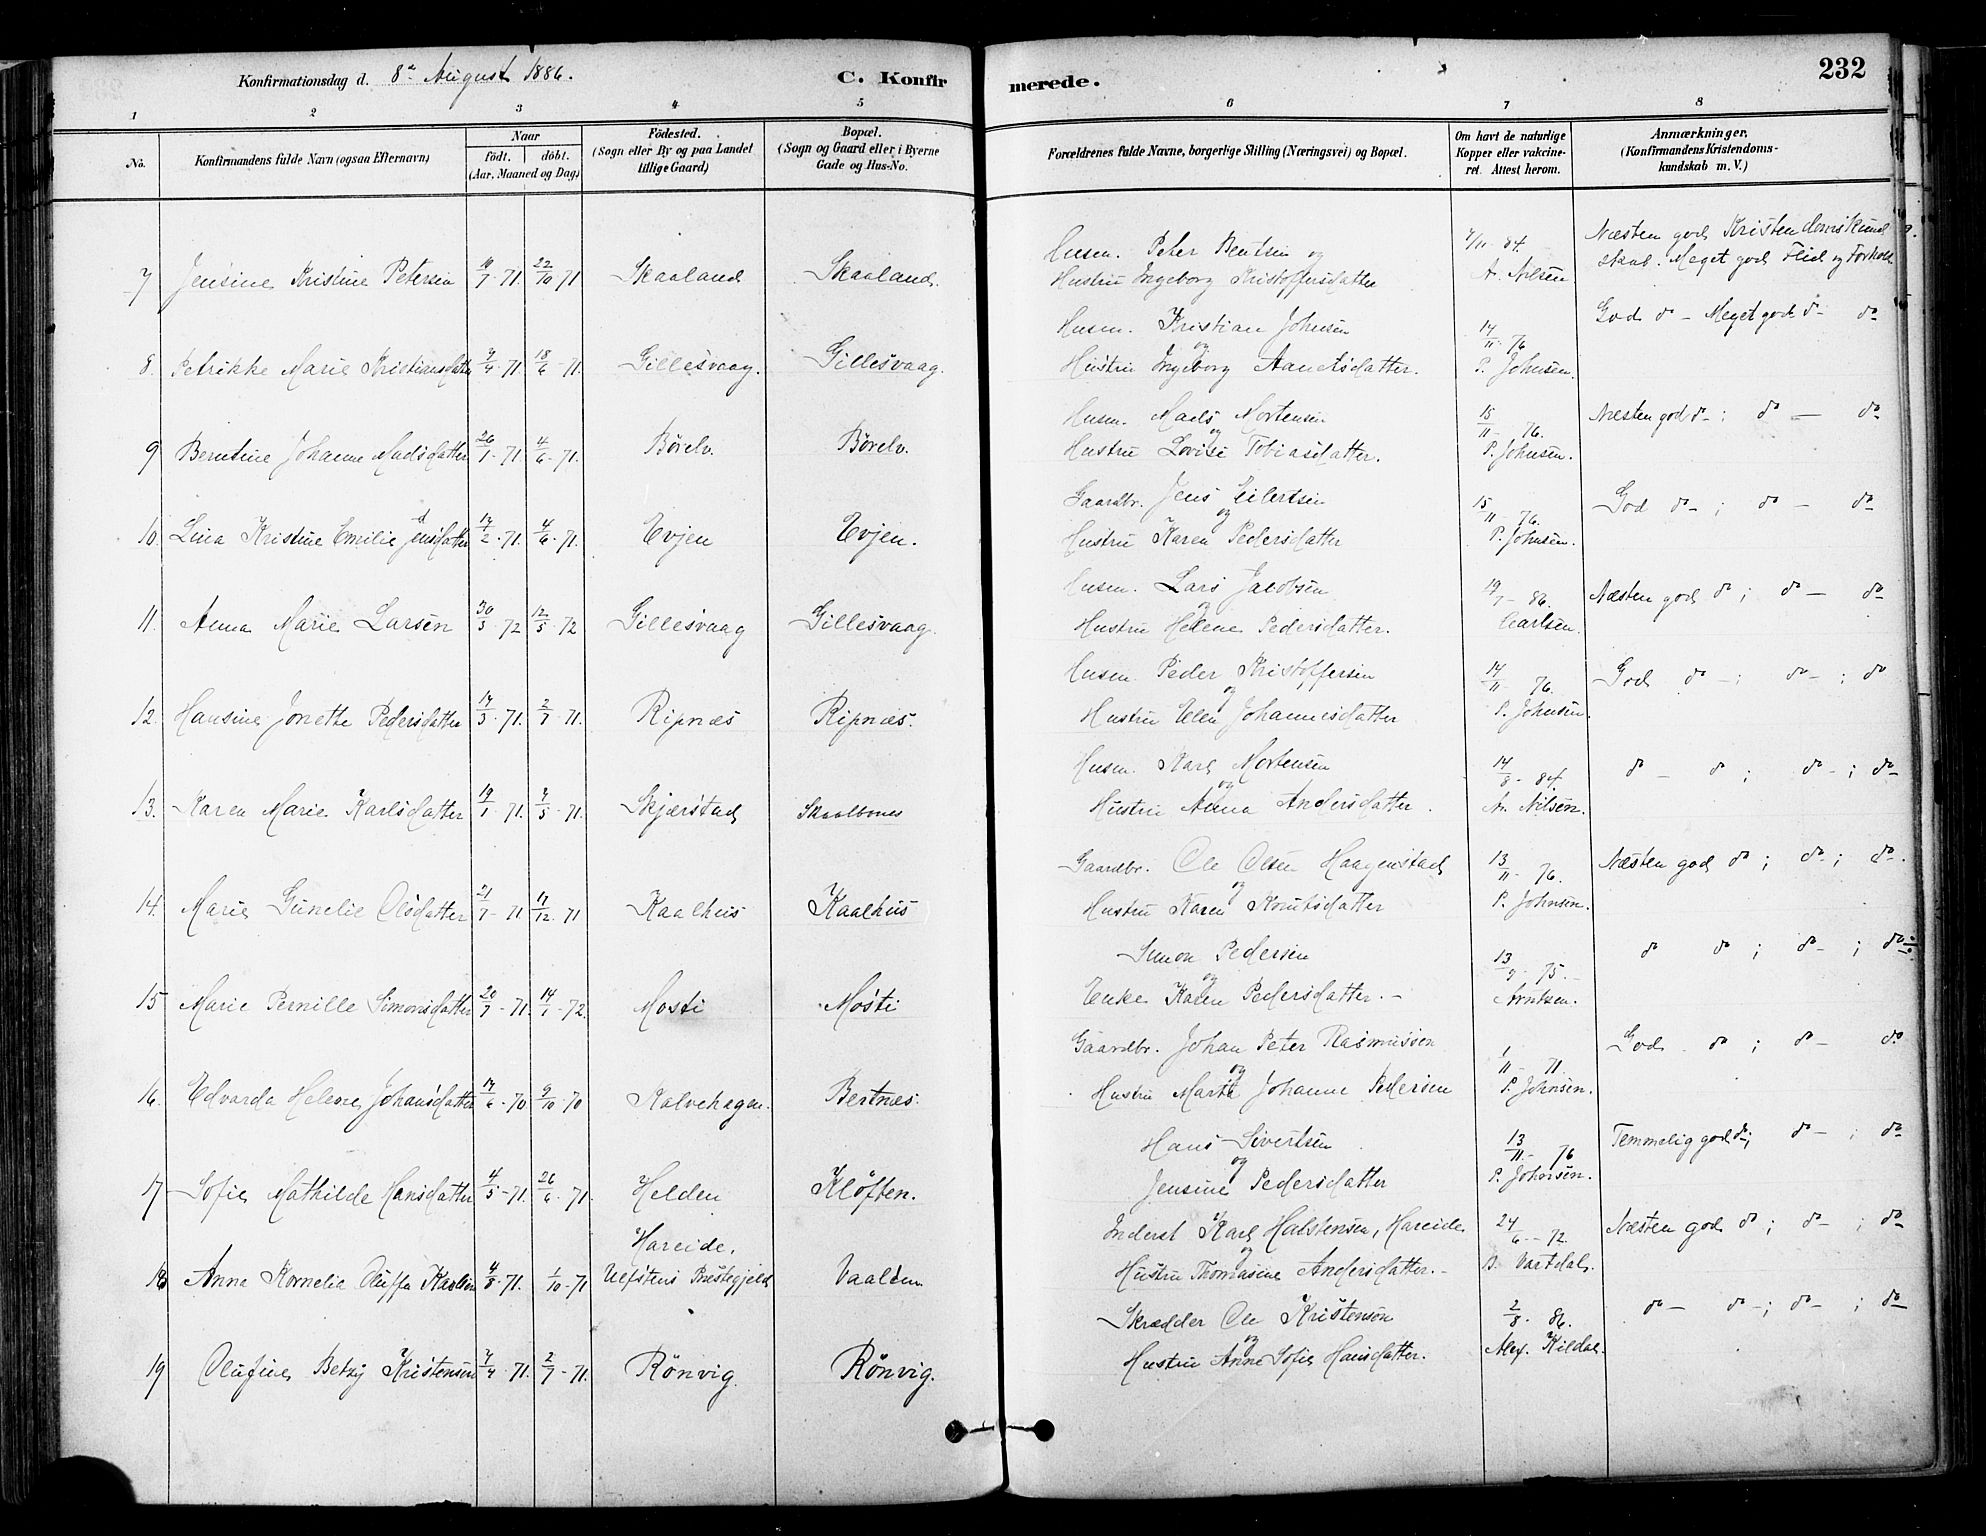 Konfirmationsdag d. 8de August 1886.
C. Konfirmerede.
232
1 2 3 4 5 6 7 8
No.
Konfirmandens fulde Navn (ogsaa Efternavn)
Naar
födt. döbt.
(Aar, Maaned og Dag)
Födested.
(Sogn eller By og paa Landet
tillige Gaard)
Bopæl.
(Sogn og Gaard eller i Byerne
Gade og Hus-No.
Forældrenes fulde Navne, borgerlige Stilling (Næringsvei) og Bopæl.
Om havt de naturlige
Kopper eller vakcine-
ret. Attest herom.
Anmærkninger.
(Konfirmandens Kristendoms-
kundskab m. V.)
Husm. Peter Bentsen og
Næsten god Kristendomskund
skab. Meget god Flid og Forhold
7 Jensine Kristine Petersen 22/10 71 Skaaland Skaaland. Hustru Ingeborg Kristoffersdatter A. Nilsen
Husm. Kristian Johnsen og 14/11 - 76 God do - Meget god do - do
8. Petrikke Marie Kristiansdatter 18/6 - 71. Gillesvaag. Gillesvaag. Hustru Ingeborg Aanetsdatter. P. Johnsen.
Husm. Mads Mortensen og 15/11 - 76. Næsten god do - ; do - do
9 Berntine Johanne Madsdatter 26/1 - 71. 4/6 - 71. Börelv. Börelv. Hustru Lovise Tobiasdatter. P. Johnsen.
Gaardbr. Jens Eilertsen og 15/11 - 76. God do - ; do - do
10. Lina Kristine Emilie Jensdatter 4/6 - 71. Evjen Evjen. Hustru Karen Pedersdatter P. Johnsen.
Husm. Lars Jacobsen og 19/7 - 86. Næsten god do ; do - do
11. Anna Marie Larsen 30/3 - 72 12/5 - 72 Gillesvaag Gillesvaag. Hustru Helene Pedersdatter. Carlsen.
Husm. Peder Kristoffersen og 14/11 - 76. God do - ; do - ; do
12. Hansine Jonette Pedersdatter 2/7 - 71. Ripnæs Ripnæs. Hustru Elen Johannesdatter P. Johnsen.
Husm. Karl Mortensen og 14/8 - 84. do - do ; do - ; do
13. Karen Marie Karlsdatter 19/1 - 71. Skjærstad Skaalbones Hustru Anna Andersdatter. A. Nilsen.
Gaardbr. Ole Olsen Haagenstad og 13/11 - 76. Næsten god do ; do - ; do.
14. Marie Gunelie Olsdatter 21/7 - 71 71 Kaalhus Kaalhus Hustru Karen Knutsdatter P. Johnsen.
Simon Pedersen og 75. - do do ; do - ; do
15 Marie Pernille Simonsdatter 20/7 - 71. 14/1 - 72. Mosti Mosti Enke Karen Pedersdatter. - Arntzen.
Gaardbr. Johan Peter Rasmussen og 1/11 - 71. God do ; do - do
16. Edvarda Helene Johansdatter 9/10 - 70 Kalvehagen. Bertnæs. Hustru Marta Johanne Pedersen P. Johnsen.
Hans Sivertsen og 13/11 - 76 Temmelig god do ; do - ; do
17 Sofie Mathilde Hansdatter 4/5 - 71. 26/6 - 71. Helden Klöften. Jensine Pedersdatter P. Johnsen.
Hareide, Inderst Karl Halstensen, Hareide og 24/6 - 72. Næsten god do ; do - ; do
18 Anna Kornelia Oluffa Karlsen 4/8 - 71. 1/10 - 71 Ulfstens Præstegjeld Vaalden Hustru Thomasine Andersdatter. - Vartdal.
Skrædder Ole Kristensen og 2/8 - 86. do - do - ; do - ; do
19 Olufine Betzy Kristensen 2/7 - 71. Rönvig Rönvig. Hustru Anne Sofie Hansdatter. Alex. Kildal.